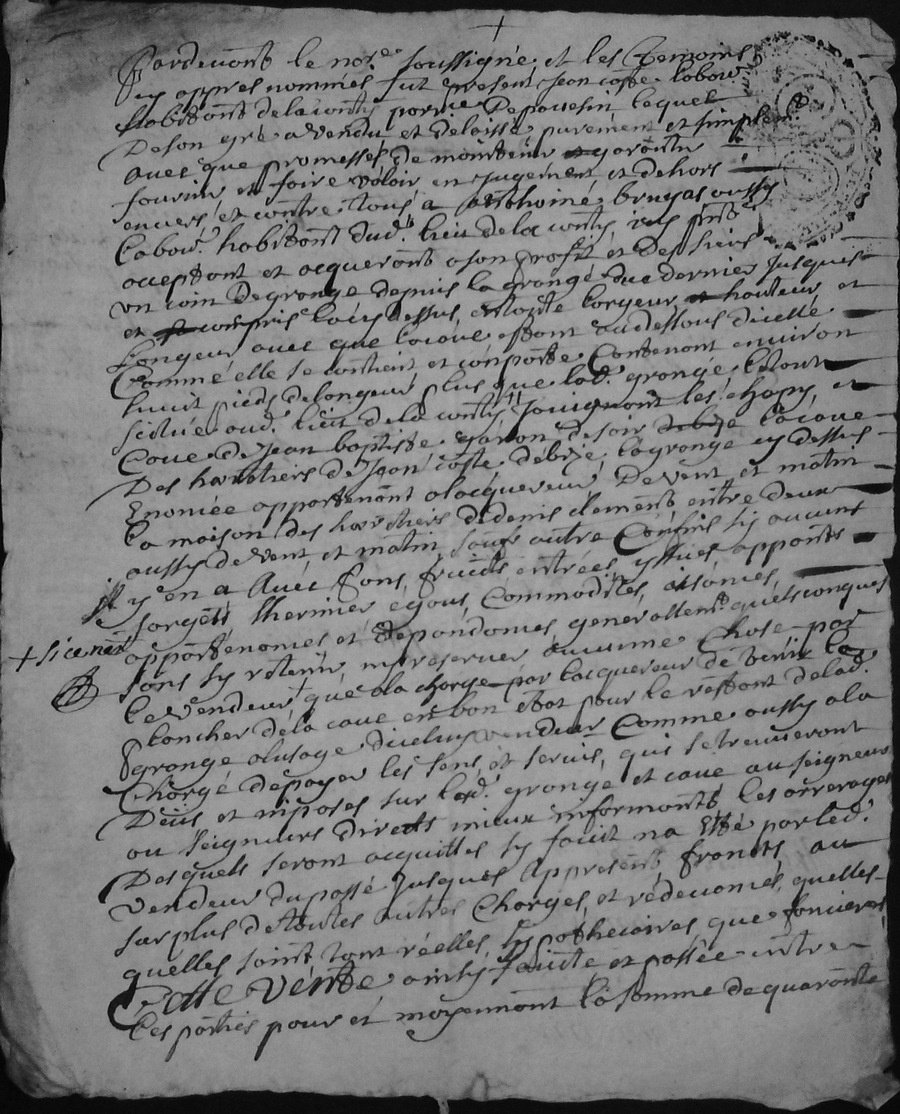 Pardevant le notre soussigné et les temoins
cy appres nommés fut present Jean coste labour
habittant de la conty parsse De pousesin lequel
De son gré a vendu et delaissé purement et simplemt
avec que promesses de maintenir garantir
fournir et faire valoir en jugement et dehors
envers et contre tous a anthoine bruyas aussy
labour habittant dud. lieu de la conty icy pnt
aceptant et acquerant a son profit et Des siens
un coin De grange depuis la grange dud dernier jusques
et compris la cy dessus en toutte largeur et hauteur et
Longeur avec que la cave estant au dessous d'icelle
Comme elle se contient et comporte Contenant environ
huict pieds de longeur plus que lad. grange le tout
scitué aud. lieu de la conty jouignant les chapy et
Cave de Jean baptiste de soir la cave
Des haritiers de Jean coste de bize la grange cy dessus
Enoncée appartenant a lacquereur De vent et matin
la maison des haritiers de denis clement entre deux
aussy de vent et matin sauf autre Confins sy aucuns
y en a Avec fons, fruicts entrées yssues appants
sorgets lhermier egous, Commodités, aisances,
appartenances et dépandances generallemt quelsconques
+ si ce nest
sans sy retenir ny reserver aucunne Chose par
le vendeur + que a la charge par lacquereur de tenir le
plancher de la cave en bon etat pour le restant de lad.
grange a lusage dicelluy vendeur Comme aussy a la
Charge de payer les sens et servis qui se trouveront
Deus et inposes sur lesd. grange et cave au seigneur
ou seigneurs directs mieux informants les arrerages
Desquels seront acquittes sy faict na Esté par led.
vendeur du passé jusques appresent francs au
surplus de toutes autres Charges et redevances quelles
quelles soint tant réelles hypothecaires que foncieres
Cette vente ainsy faicte et passée entre
les parties pour et moyennant la somme de quarante